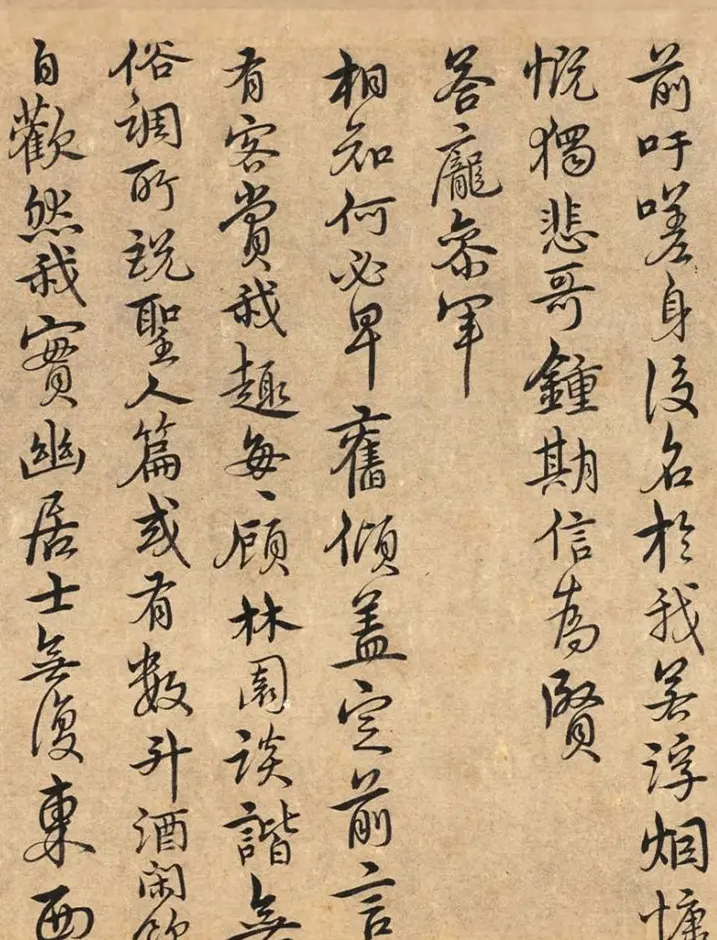 前吁嗟身後名於我若浮烟慷
慨獨悲哥鍾期信為賢
答龐叅軍
相知何必早舊傾盖定前言
有客賞我趣每〻顧林園談諧無
俗調所說聖人篇或有數升酒閑飲
自歡然我實幽居士無復東西